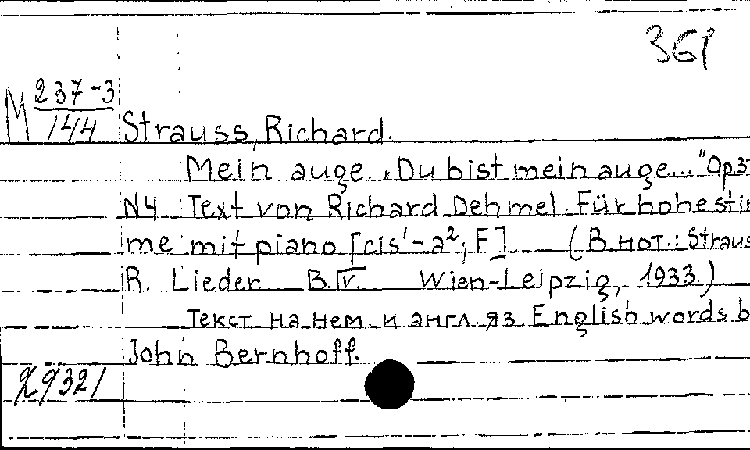 361
M 237-3
144
Strauss, Richard.
Mein auge „Du bist mein auge..." Op 3
N4 Text von Richard Dehmel. Für hohe stim
me mit piano [cis'-a², F] (В нот.: Straus
R. Lieder B.IV. Wien-Leipzig, 1933.)
Текст на нем. и англ. яз. English words b
John Bernhoff.
29321